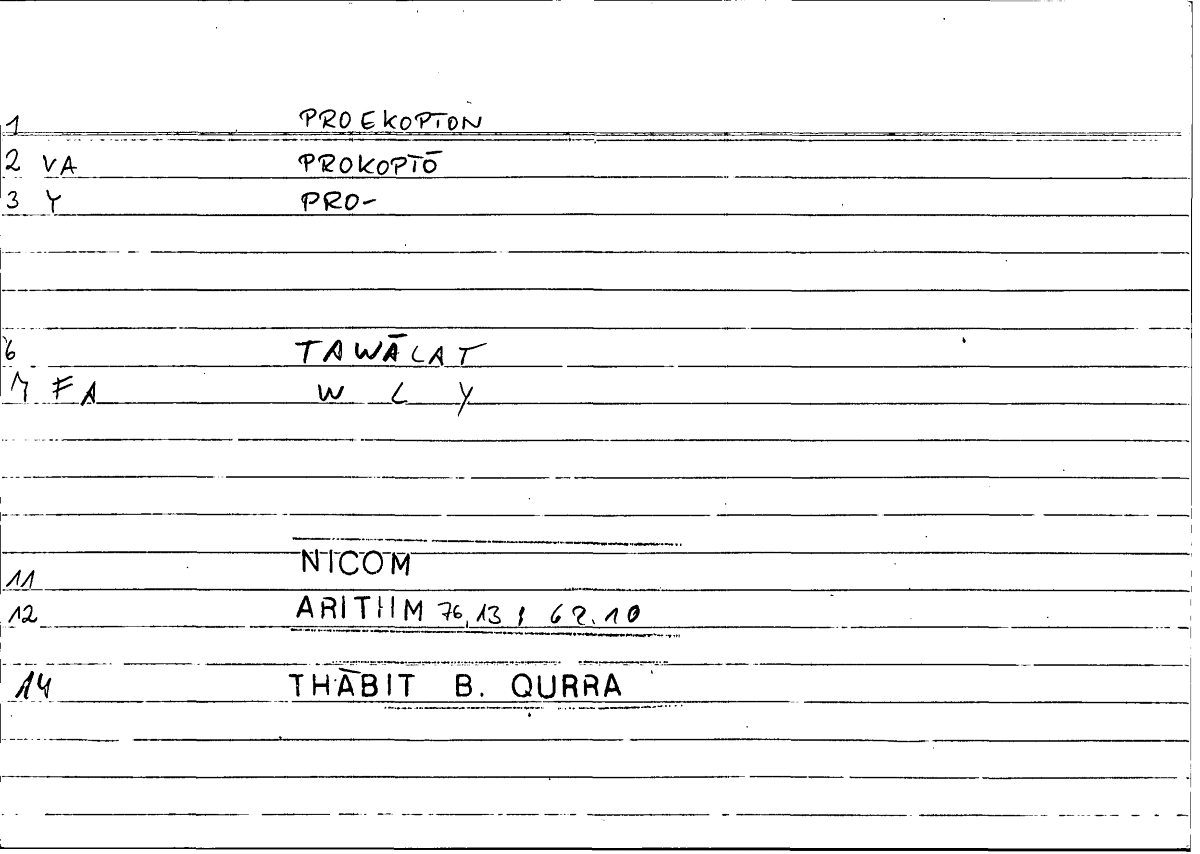 1 PROEKOPTON
2 VA PROKOPTŌ
3 Y PRO-
6 TAWĀLAT
7 FA W L Y
11 NICOM
12 ARITHM 76,13 ; 62.10
14 THĀBIT B. QURRA